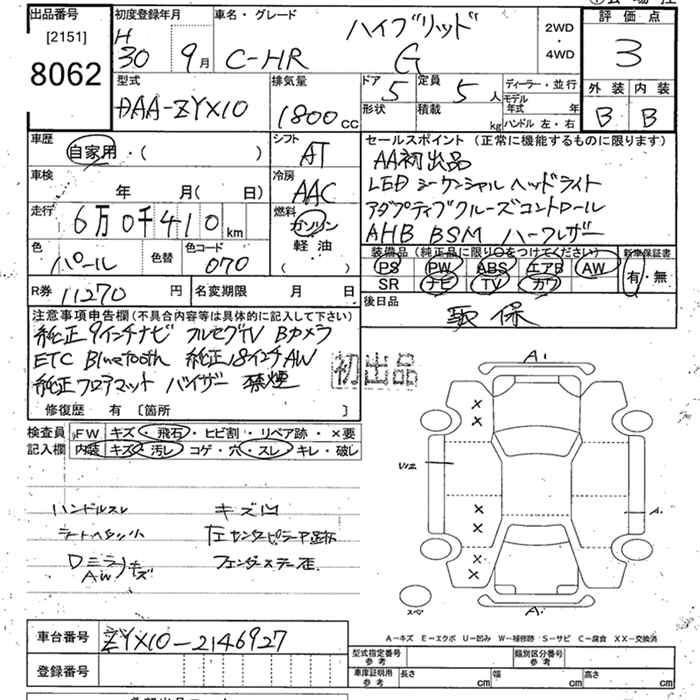 出品番号 初度登録年月 車名・グレード ハイブリッド 2WD・4WD 評価点
[2151] H30 9月 C-HR G 3
8062
型式 排気量 ドア 定員 ディーラー・並行 外装 内装
DAA-ZYX10 1800cc 5 5人 モデル年式 年 B B
形状 積載 kg ハンドル 左・右
車歴 シフト セールスポイント (正常に機能するものに限ります)
自家用・( ) AT AA初出品
車検 冷房 LED シーケンシャル ヘッドライト
年 月( 日) AAC アダプティブクルーズコントロール
走行 燃料 AHB BSM ハーフレザー
6万0千410km ガソリン
軽油
( )
色 色替 色コード 装備品 (純正品に限り○をつけてください) 新車保証書
パール 070 PS PW ABS エアB AW 有・無
SR ナビ TV カワ
R券 11270円 名変期限 月 日 後日品
取 保
注意事項申告欄(不具合内容等は具体的に記入して下さい)
純正9インチナビ フルセグTV Bカメラ
ETC Bluetooth 純正18インチAW
純正フロアマット バイザー 禁煙
初出品
修復歴 有 [箇所 ]
検査員 FW キズ・飛石・ヒビ割・リペア跡・×要
記入欄 内装 キズ・汚レ・コゲ・穴・スレ・キレ・破し
ハンドルスレ キズ凹
シートヘタリ小 左センターピラー
Dミラーキズ フェンダーステー歪
AW
A1
A
A
スペ
A-キズ E-エクボ U-凹み W-補修跡 S-サビ C-腐食 XX-交換済
車台番号 ZYX10-2146927
型式指定番号 参考 類別区分番号 参考
登録番号 車庫証明用 参考 長さ cm 幅 cm 高さ cm